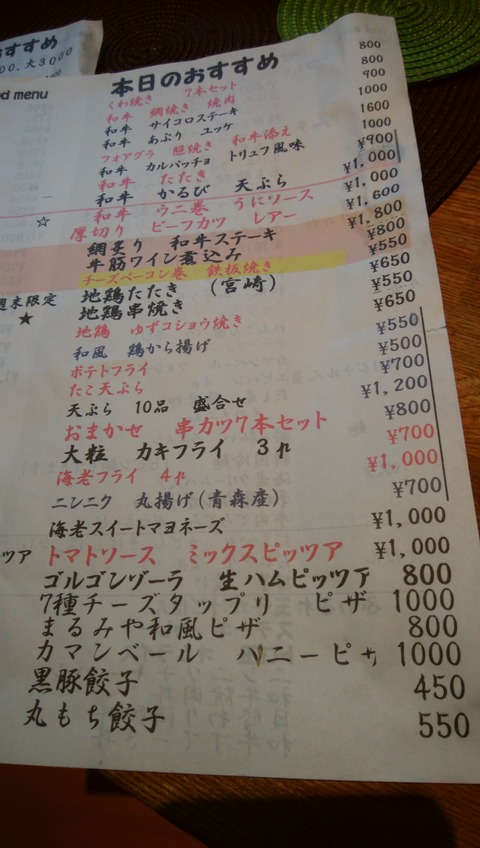 おすすめ
00、大3000
ed menu
本日のおすすめ
くわ焼き 7本セット 800
和牛 網焼き 焼肉 800
和牛 サイコロステーキ 900
和牛 あぶり ユッケ 1000
フォアグラ 照焼き 和牛添え 1600
和牛 カルパッチョ トリュフ風味 1000
和牛 たたき ¥900
和牛 かるび 天ぷら ¥1,000
☆ 和牛 ウニ巻 うにソース ¥1,000
厚切り ビーフカツ レアー ¥1,600
網炙り 和牛ステーキ ¥1,800
牛筋ワイン煮込み ¥800
チーズベーコン巻 鉄板焼き ¥550
週末限定 地鶏たたき (宮崎) ¥650
★ 地鶏串焼き ¥550
地鶏 ゆずコショウ焼き ¥650
和風 鶏から揚げ ¥550
ポテトフライ ¥500
たこ天ぷら ¥700
天ぷら 10品 盛合せ ¥1,200
おまかせ 串カツ7本セット ¥800
大粒 カキフライ 3ヶ ¥700
海老フライ 4ヶ ¥1,000
ニンニク 丸揚げ(青森産) ¥700
海老スイートマヨネーズ ¥1,000
ッツア トマトソース ミックスピッツア ¥1,000
ゴルゴンゾーラ 生ハムピッツア 800
7種チーズタップリ ピザ 1000
まるみや和風ピザ 800
カマンベール ハニーピザ 1000
黒豚餃子 450
丸もち餃子 550